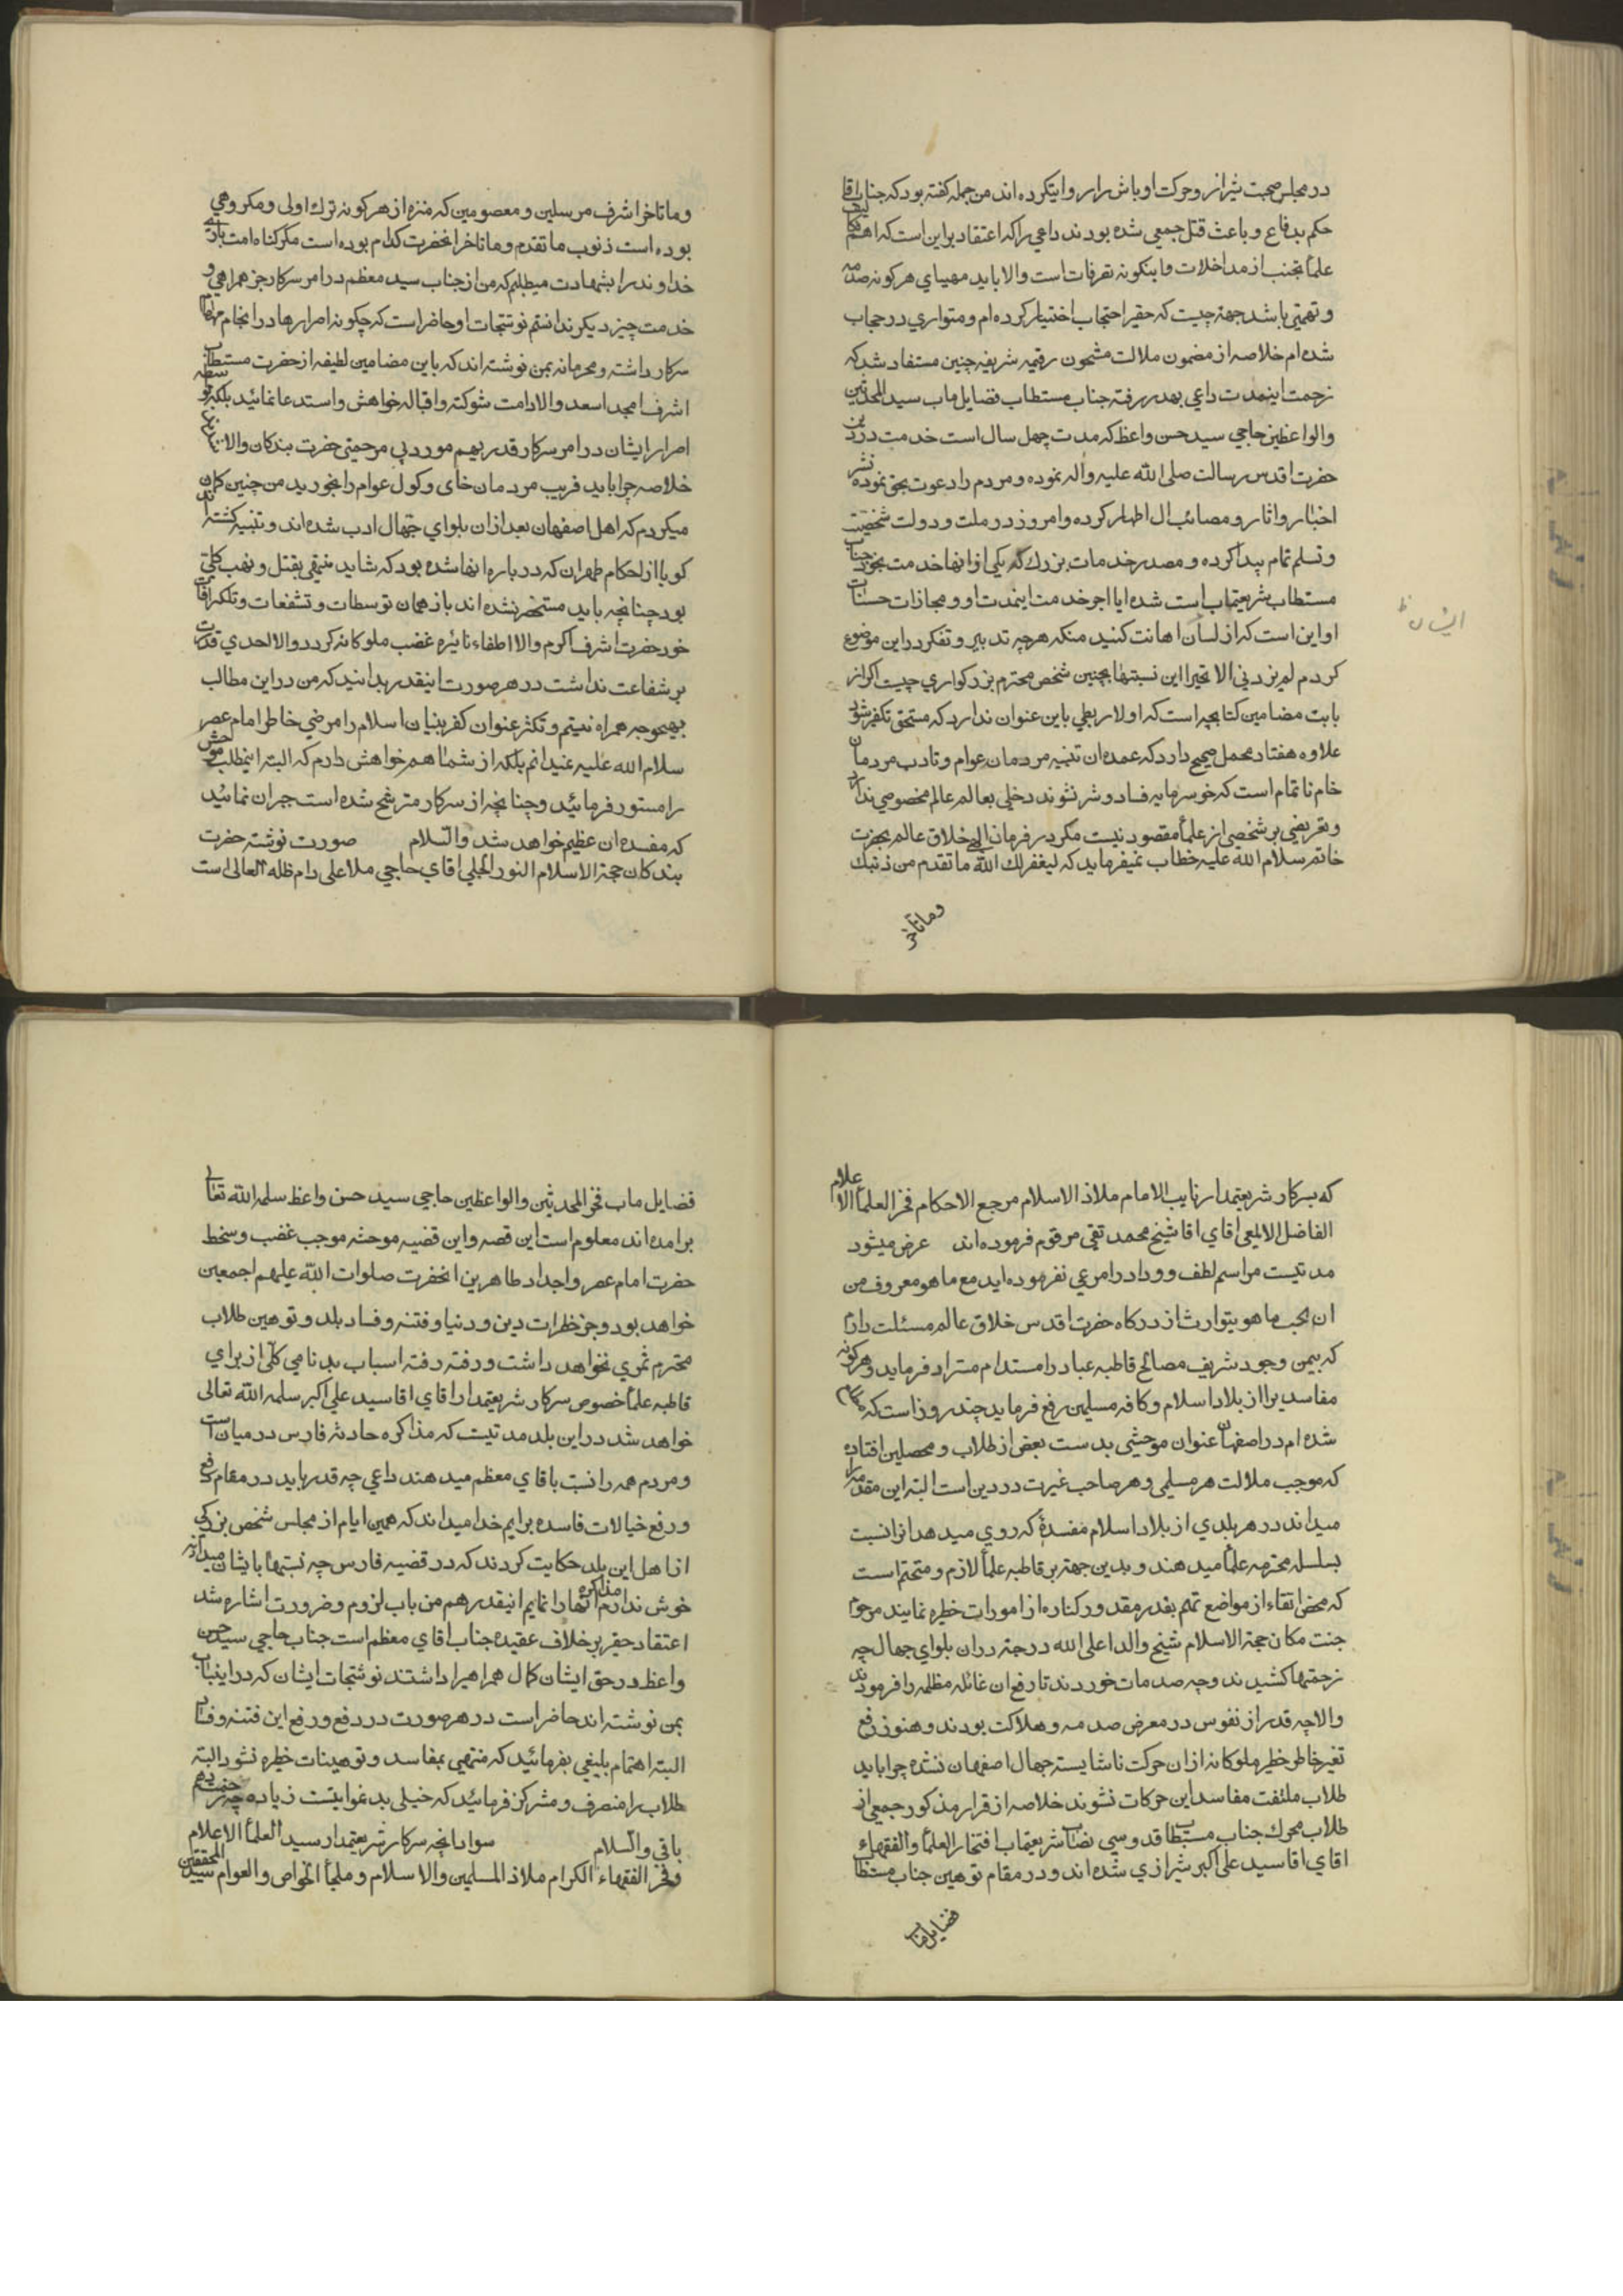 در مجلس صحبت شیراز و حرکت اوباش را روایت کرده اند من جمله کفته بود که جناب اقا
حکم بدفاع و باعث قتل جمعی شده بودند داعی را که اعتقاد براین است که اهم
علما تجنب از مداخلات و اینکونه تفرقات است والا باید مهیای هر کونه صدمه
و تهمتی باشد جهة چیست که حقیر احتجاب اختیار کرده ام و متواری در حجاب
شده ام خلاصه از مضمون ملالت مشحون رقیمه شریفه چنین مستفاد شد که
زحمت اینمدت داعی بهدر رفته جناب مستطاب فضایل ماب سید المحدثین
والواعظین حاجی سید حسن واعظ که مدت چهل سال است خدمت در دین
حضرت اقدس رسالت صلی الله علیه واله نموده و مردم را دعوت بحق نموده نشر
اخبار و اثار و مصائب ال اطهار کرده و امروز در ملت و دولت شخصیت
و تسلم تمام پیدا کرده و مصدر خدمات بزرك که یکی از انها خدمت بخود جناب
مستطاب شریعتماب است شده ایا اجر خدمت اینمدت او و مجازات حسنات
او این است که از لسان اهانت کنید منکه هرچه تدبیر و تفکر در این موضوع
الیشان ظ
کردم لم یزدنی الا تحیرا این نسبتها بچنین شخص محترم بزرکواری چیست اکر از
بابت مضامین کتابچه است که اولا ربطی باین عنوان ندارد که مستحق تکفیر شود
علاوه هفتاد محمل صحیح دارد که عمده ان تنبیه مردمان عوام و تادب مردمان
خام ناتمام است که خو سرمایه فساد و شر نشوند دخلی بعالم عالم مخصوصی ندارد
و تعریضی بر شخصی از علما مقصود نیست مکر در فرمان الهی خلاق عالم بحضرت
خاتم سلام الله علیه خطاب نمیفرماید که لیغفر لك الله ما تقدم من ذنبك
وما تأخر
وما تاخر اشرف مرسلین و معصومین که منزه از هر کونه ترك اولی و مکروهی
بوده است ذنوب ما تقدم و ما تاخر انحضرت کدام بوده است مکر کناه امت باری
خداوند را بشهادت میطلبم که من از جناب سید معظم در امر سرکار جز همراهی و
خدمت چیز دیکر ندانستم نوشتجات او حاضر است که چکونه اصرارها در انجام مهام
سرکار داشته و محرمانه بمن نوشته اند که باین مضامین لطیفه از حضرت مستطاب
اشرف امجد اسعد والا دامت شوکته و اقباله خواهش و استدعا نمائید بلکه بتوسطه
اصرار ایشان در امر سرکار قدریهم مورد بی مرحمتی حضرت بندکان والا
خلاصه چرا باید فریب مردمان خای و کول عوام را بخورید من چنین کمان
میکردم که اهل اصفهان بعد از ان بلوای جهال ادب شده اند و تنبیه کشته اند
کویا از احکام طهران که درباره انها شده بود که شاید منتهی بقتل و نهب کلی
بود چنانچه باید مستحضر نشده اند باز همان توسطات و تشفعات و تلکرافات
خود حضرت اشرف اکرم والا اطفاء نائره غضب ملوکانه کرد والا احدی قدرت
بر شفاعت نداشت در هر صورت اینقدر بدانید که من در این مطالب
بهیچوجه همراه نیستم و تکثر عنوان کفر بنیان اسلام را مرضی خاطر امام عصر
سلام الله علیه نمیدانم بلکه از شما هم خواهش دارم که البته اینمطلب موحش
را مستور فرمائید و چنانچه از سرکار مترشح شده است جبران نمائید
که مفسده ان عظیم خواهد شد والسلام صورت نوشته حضرت
بندکان حجة الاسلام النور الجلی اقای حاجی ملا علی دام ظله العالی است
که بسرکار شریعتمدار نایب الامام ملاذ الاسلام مرجع الاحکام فخر العلما الاعلام
الفاضل الالمعی اقای اقا شیخ محمد تقی مرقوم فرموده اند عرض میشود
مدتیست مراسم لطف و وداد را مرعی نفرموده اید مع ما هو معروف من
ان الحب ما هو یتوارث از درکاه حضرت اقدس خلاق عالم مسئلت دارم
که بیمن وجود شریف مصالح قاطبه عباد را مستدام متزاد فرماید و هرکونه
مفاسدیرا از بلاد اسلام و کافه مسلمین رفع فرماید چند روز است که
شده ام در اصفهان عنوان موحشی بدست بعضی از طلاب و محصلین افتاده
که موجب ملالت هر مسلمی و هر صاحب غیرت در دین است البته این مقدمه را
میداند در هر بلدی از بلاد اسلام مفسدۀ که روی میدهد انرا نسبت
بسلسله محترمه علما میدهند و بدین جهة بر قاطبه علما لازم و متحتم است
که محض اتقاء از مواضع تهم بقدر مقدور کناره از امورات خطره نمایند مرحوم
جنت مکان حجة الاسلام شیخ والد اعلی الله درجته در ان بلوای جهال چه
زحمتها کشیدند و چه صدمات خوردند تا رفع ان غائله مظلمه را فرمودند
والا چه قدر از نفوس در معرض صدمه و هلاکت بودند و هنوز رفع
تغیر خاطر خطیر ملوکانه از ان حرکت ناشایسته جهال اصفهان نشده چرا باید
طلاب ملتفت مفاسد این حرکات نشوند خلاصه از قرار مذکور جمعی از
طلاب محرك جناب مستطاب قدوسی نصاب شریعتماب افتخار العلما والفقهاء
اقای اقا سید علی اکبر شیرازی شده اند و در مقام توهین جناب مستطاب
فضایل ماب
فضایل ماب فخر المحدثین والواعظین حاجی سید حسن واعظ سلمه الله تعالی
برامده اند معلوم است این قصه و این قضیه موحشه موجب غضب و سخط
حضرت امام عصر و اجداد طاهرین انحضرت صلوات الله علیهم اجمعین
خواهد بود و جز خطرات دین و دنیا و فتنه و فساد بلد و توهین طلاب
محترم ثمری نخواهد داشت و رفته رفته اسباب بدنامی کلی از برای
قاطبه علما خصوص سرکار شریعتمدار اقای اقا سید علی اکبر سلمه الله تعالی
خواهد شد در این بلد مدتیست که مذاکره حادثه فارس در میان است
و مردم همه را نسبت باقای معظم میدهند داعی چه قدر باید در مقام دفع
و رفع خیالات فاسده برایم خدا میداند که همین ایام از مجلس شخص بزرکی
از اهل این بلد حکایت کردند که در قضیه فارس چه نسبتها بایشان میدادند
خوش ندارم مذاکره انها را نمایم اینقدر هم من باب لزوم و ضرورت اشاره شد
اعتقاد حقیر بر خلاف عقیده جناب اقای معظم است جناب حاجی سید حسن
واعظ در حق ایشان کمال همراهیرا داشتند نوشتجات ایشان که در اینباب
بمن نوشته اند حاضر است در هر صورت در دفع و رفع این فتنه و فساد
البته اهتمام بلیغی بفرمائید که منتهی بمفاسد و توهینات خطره نشود البته
طلاب را منصرف و متذکر فرمائید که خیلی بد عنوانیست زیاده چه زحمت دهم
باقی والسلام سواد انچه سرکار شریعتمدار سید العلما الاعلام
وفخر الفقهاء الکرام ملاذ المسلمین والاسلام و ملجأ الخواص والعوام سید المحققین